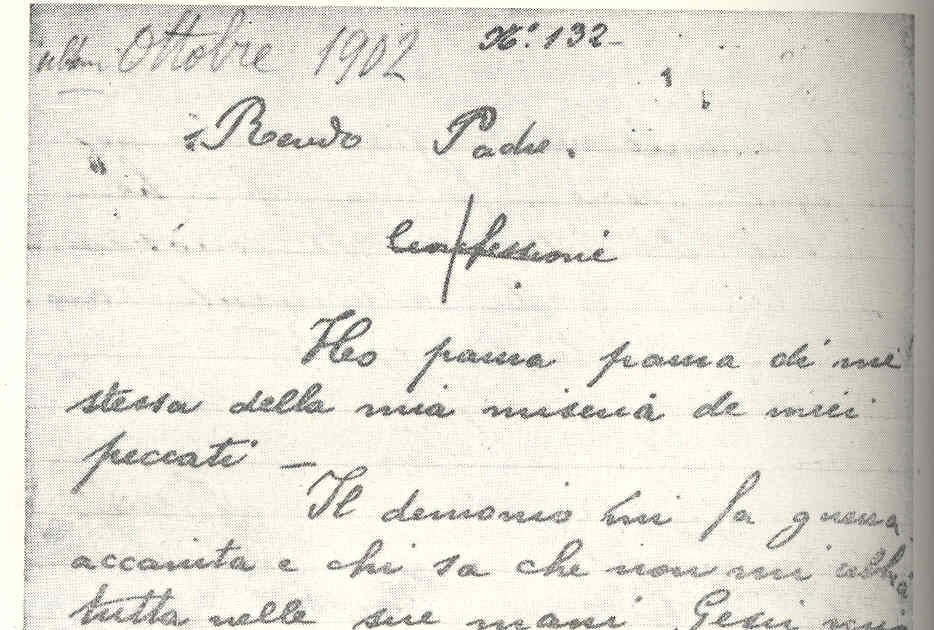 Ottobre 1902 N.° 132-
Revdo Padre.
Confessione
Ho paura paura di me
stessa della mia miseria de miei
peccati —
Il demonio mi fa guerra
accanita e chi sa che non mi abbia
tutta nelle sue mani Gesù mio